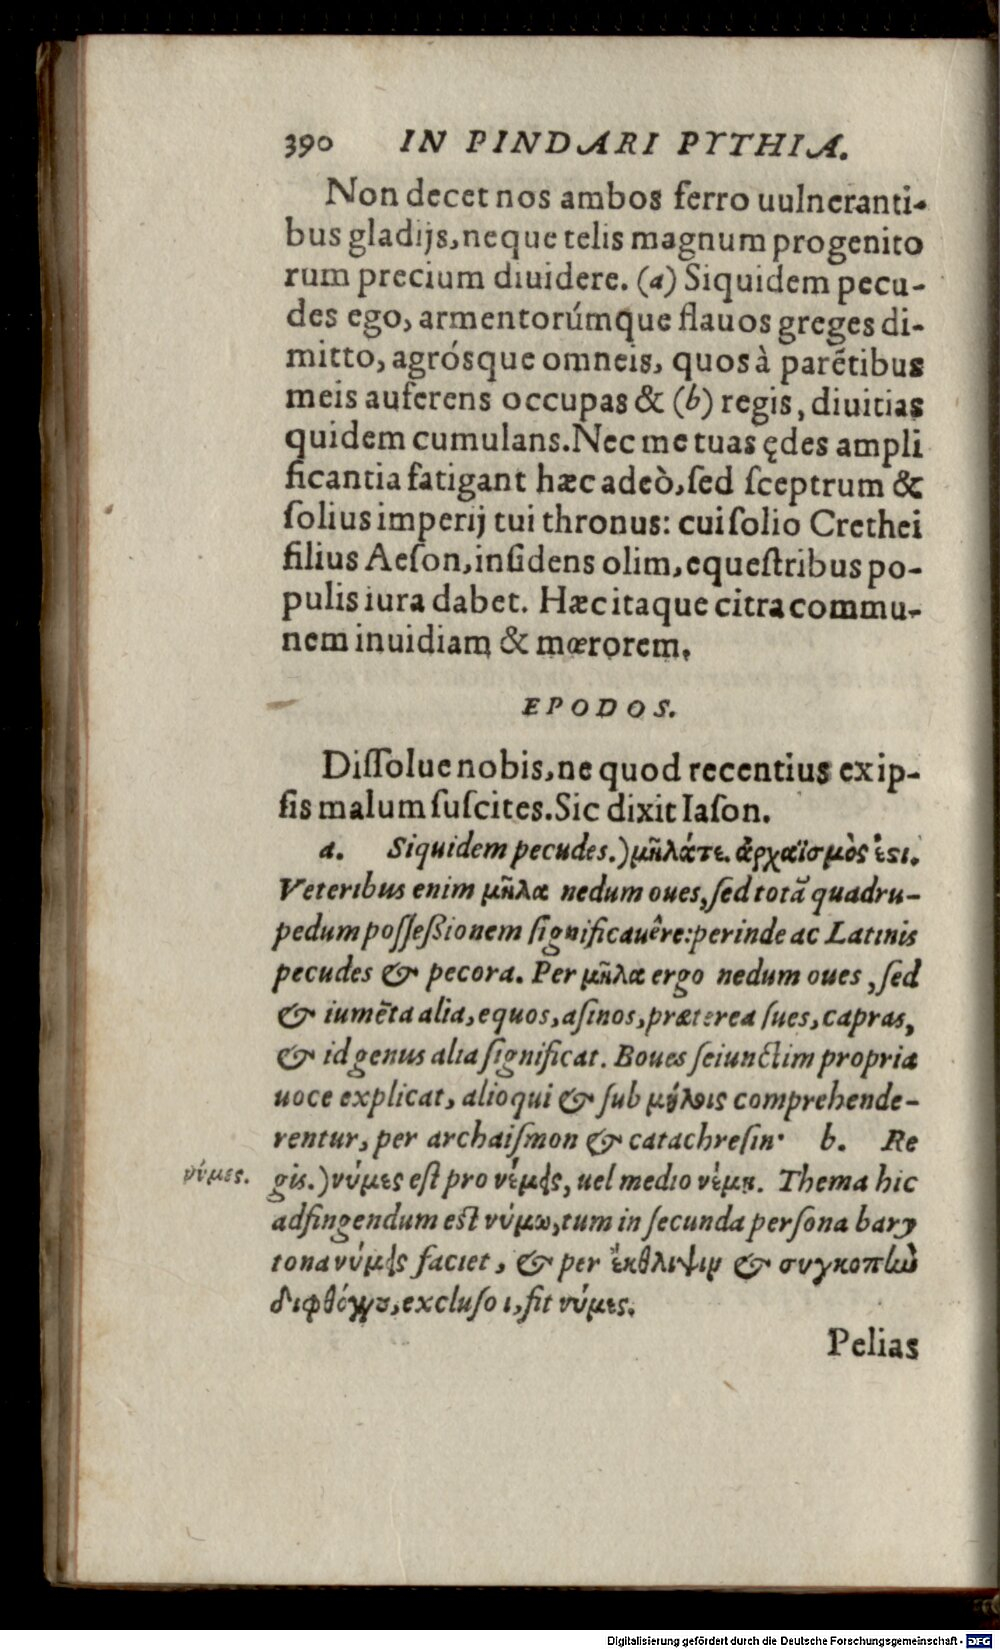 390 IN PINDARI PYTHIA.
Non decet nos ambos ferro uulneranti-
bus gladijs, neque telis magnum progenito
rum precium diuidere. (a) Siquidem pecu-
des ego, armentorúmque flauos greges di-
mitto, agrósque omneis, quos à parẽtibus
meis auferens occupas & (b) regis, diuitias
quidem cumulans. Nec me tuas ędes ampli
ficantia fatigant hæc adeò, ſed ſceptrum &
ſolius imperij tui thronus: cui ſolio Crethei
filius Aeſon, inſidens olim, equeſtribus po-
pulis iura dabet. Hæc itaque citra commu-
nem inuidiam & mœrorem.
EPODOS.
Diſſolue nobis, ne quod recentius ex ip-
ſis malum ſuſcites. Sic dixit Iaſon.
a. Siquidem pecudes.) μῆλάτε. ἀρχαϊσμὸς ἐϛι.
Veteribus enim μῆλα nedum oues, ſed totã quadru-
pedum poſſeßionem ſignificauêre: perinde ac Latinis
pecudes & pecora. Per μῆλα ergo nedum oues, ſed
& iumẽta alia, equos, aſinos, præterea ſues, capras,
& id genus alia ſignificat. Boues ſeiunctim propria
uoce explicat, alioqui & ſub μήλοις comprehende-
rentur, per archaiſmon & catachreſin. b. Re
νύμες.
gis.) νύμες eſt pro νέμεις, uel medio νέμῃ. Thema hic
adfingendum eſt νύμω, tum in ſecunda perſona bary
tona νύμεις faciet, & per ἔκθλιψιν & συγκοπὴν
διφθόγγου, excluſo ι, fit νύμες.
Pelias
Digitalisierung gefördert durch die Deutsche Forschungsgemeinschaft - DFG